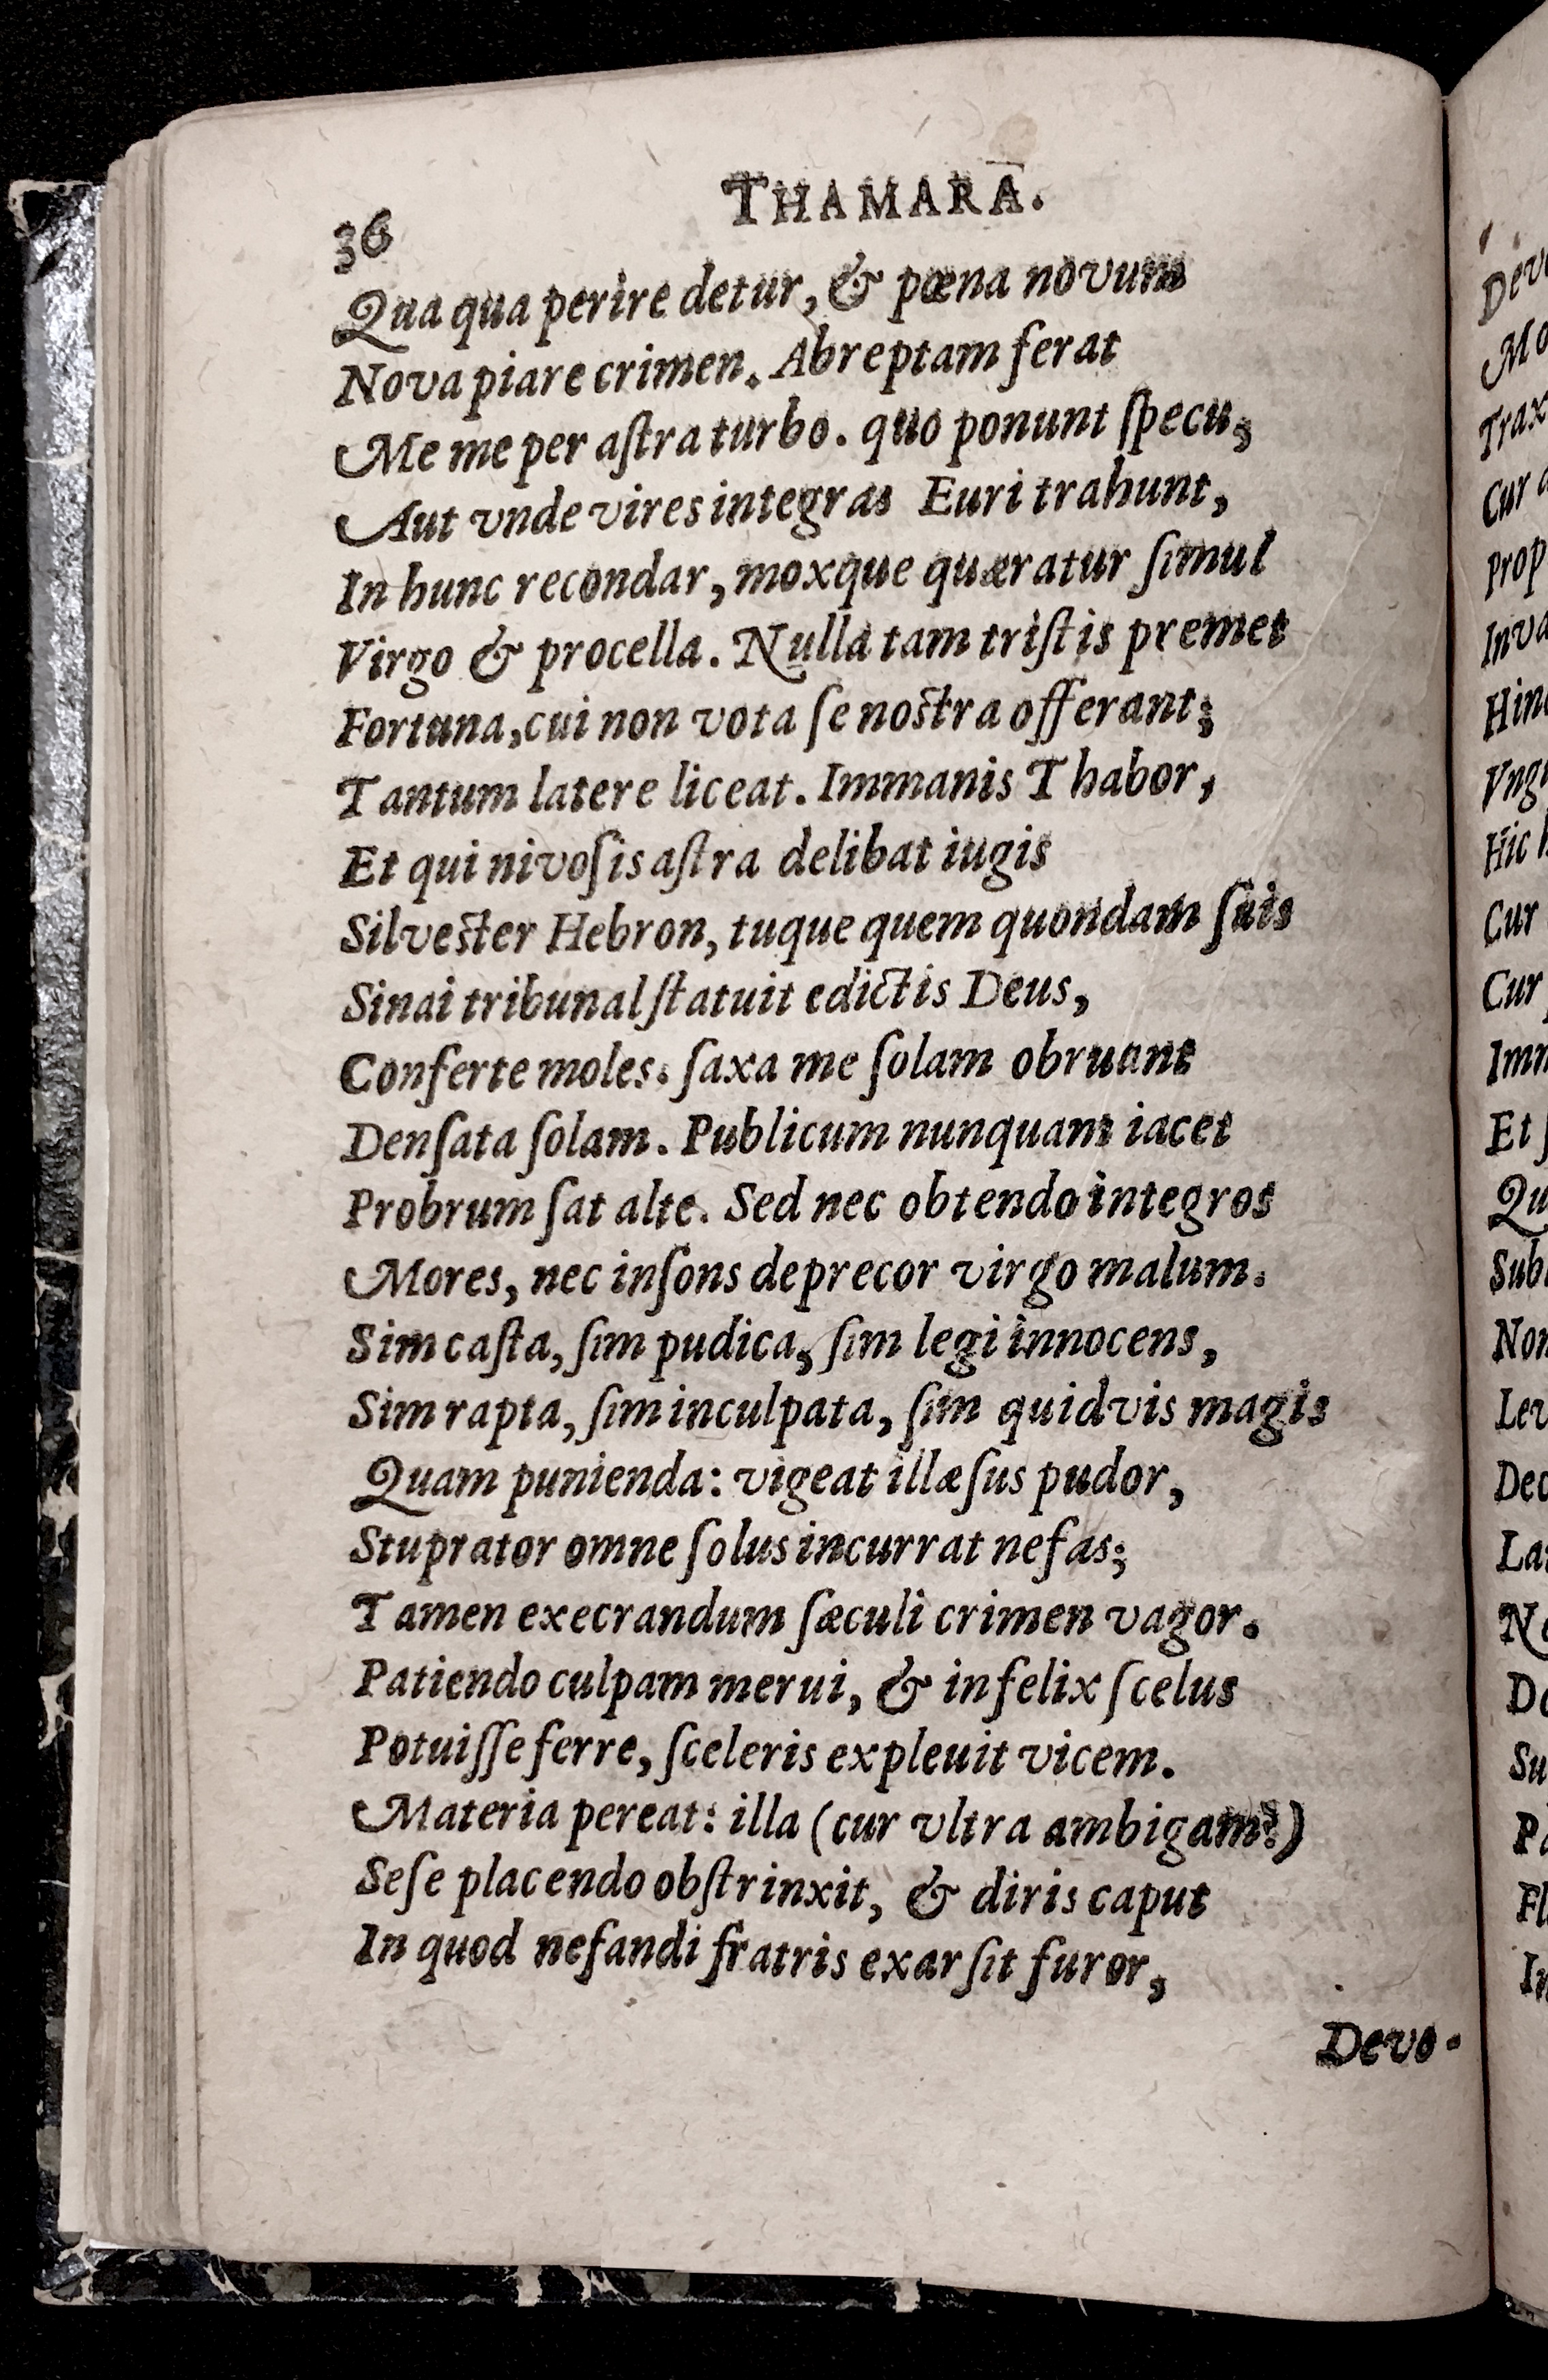 36 THAMARA.
Qua qua perire detur, & pœna novum
Nova piare crimen. Abreptam ferat
Me me per aſtra turbo. quo ponunt ſpecu,
Aut vnde vires integras Euri trahunt,
In hunc recondar, moxque quæratur ſimul
Virgo & procella. Nulla tam triſtis premet
Fortuna, cui non vota ſe noſtra offerant;
Tantum latere liceat. Immanis Thabor,
Et qui nivoſis aſtra delibat iugis
Silveſter Hebron, tuque quem quondam ſuis
Sinai tribunal ſtatuit edictis Deus,
Conferte moles. ſaxa me ſolam obruant
Denſata ſolam. Publicum nunquam iacet
Probrum ſat alte. Sed nec obtendo integros
Mores, nec inſons deprecor virgo malum.
Sim caſta, ſim pudica, ſim legi innocens,
Sim rapta, ſim inculpata, ſim quidvis magis
Quam punienda: vigeat illæſus pudor,
Stuprator omne ſolus incurrat nefas;
Tamen execrandum ſæculi crimen vagor.
Patiendo culpam merui, & infelix ſcelus
Potuiſſe ferre, ſceleris expleuit vicem.
Materia pereat: illa (cur vltra ambigam?)
Seſe placendo obſtrinxit, & diris caput
In quod nefandi fratris exarſit furor,
Devo-
Mo
Trax
Cur
Prop
Hin
Hic
Cur
Cur
Et
Qu
Sub